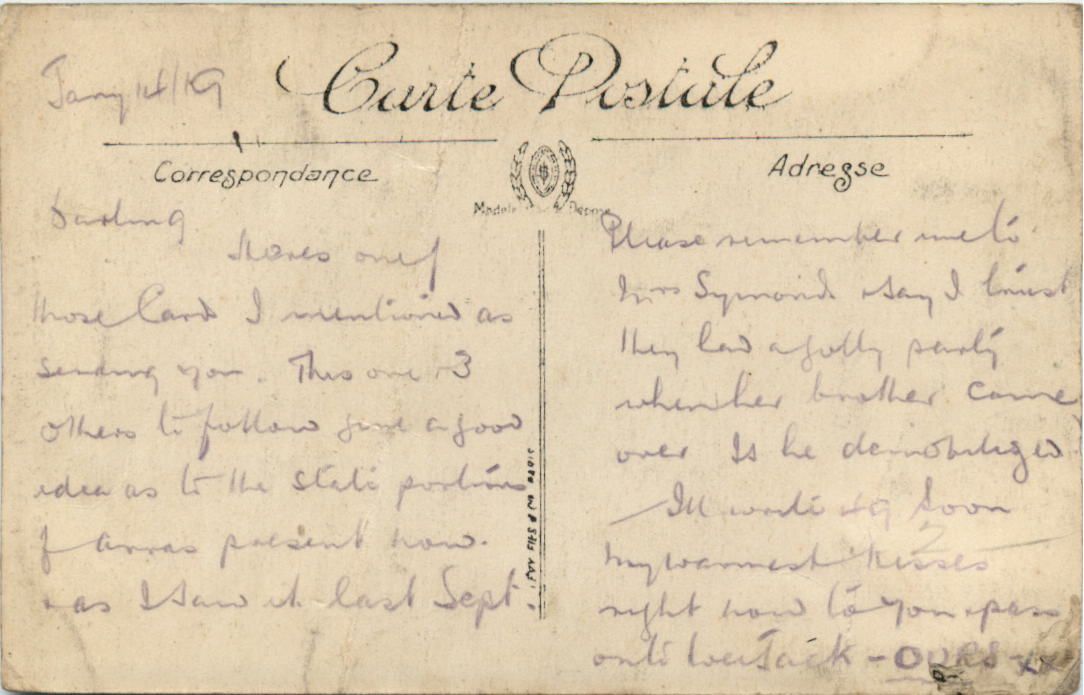 Jany 14/19
Carte Postale
Correspondance
Adresse
Modèle Déposé
Darling
Heres one of
those Cards I mentioned as
sending you. This one + 3
others to follow give a good
idea as to the state portions
of Arras present now.
+ as I saw it last Sept.
Please remember me to
Mrs Symonds + say I trust
they had a jolly party
when her brother came
over Is he demobilized?
Ill write soon
My warmest kisses
right now to you + pass
onto wee Jack - OURS - xx